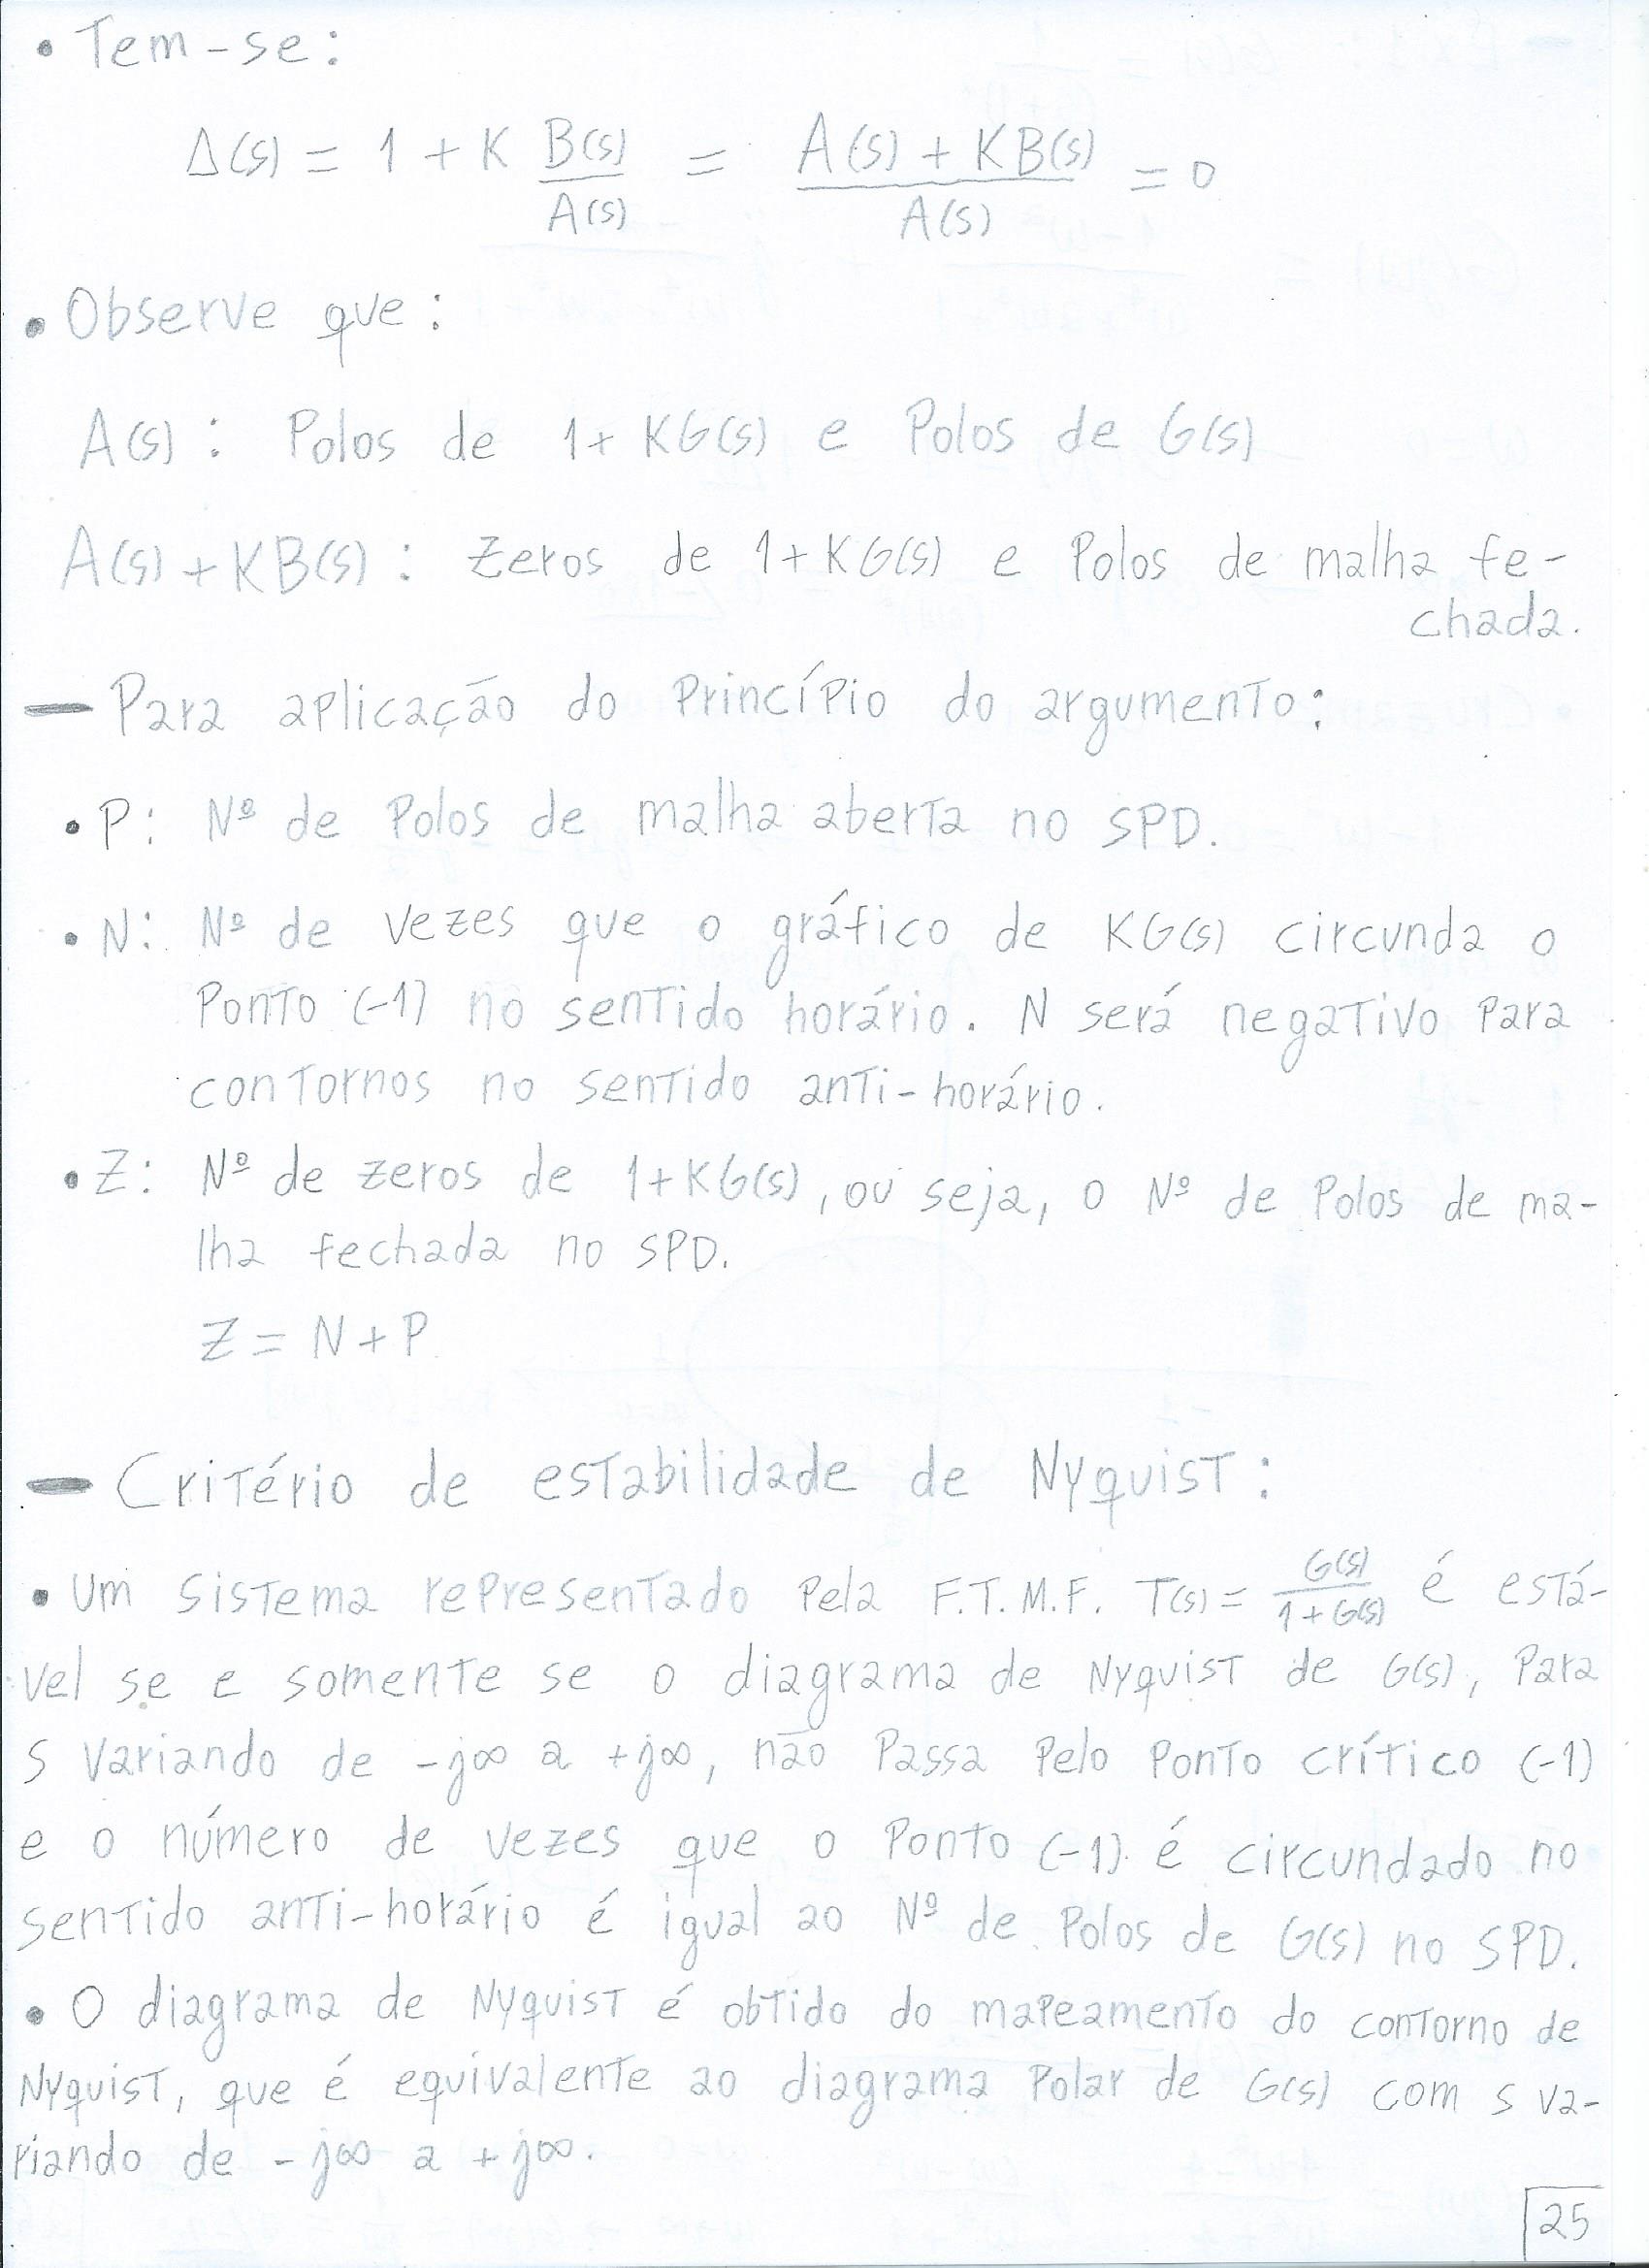 • Tem-se:
Δ(s) = 1 + K B(s)/A(s) = (A(s) + KB(s))/A(s) = 0
• Observe que:
A(s): Polos de 1+KG(s) e Polos de G(s)
A(s)+KB(s): Zeros de 1+KG(s) e Polos de malha fe-
chada.
— Para aplicação do Princípio do argumento:
• P: Nº de Polos de malha aberta no SPD.
• N: Nº de vezes que o gráfico de KG(s) circunda o
Ponto (-1) no sentido horário. N será negativo Para
contornos no sentido anti-horário.
• Z: Nº de zeros de 1+KG(s), ou seja, o Nº de Polos de ma-
lha fechada no SPD.
Z = N + P
— Critério de estabilidade de Nyquist:
• Um sistema representado Pela F.T.M.F. T(s) = G(s)/(1+G(s)) é está-
vel se e somente se o diagrama de Nyquist de G(s), Para
s variando de -j∞ a +j∞, não Passa Pelo Ponto crítico (-1)
e o número de vezes que o Ponto (-1) é circundado no
sentido anti-horário é igual ao Nº de Polos de G(s) no SPD.
• O diagrama de Nyquist é obtido do mapeamento do contorno de
Nyquist, que é equivalente ao diagrama Polar de G(s) com s va-
riando de -j∞ a +j∞.
25